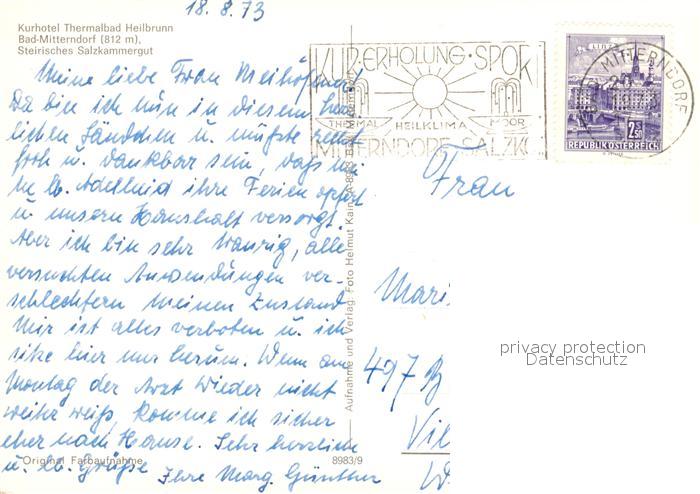 18.8.73
Kurhotel Thermalbad Heilbrunn
Bad-Mitterndorf (812 m),
Steirisches Salzkammergut
Meine liebe Frau
Da bin ich nun in diesem herr
lichen Ländchen u. müsste recht
froh u. dankbar sein, daß
lb. Adelheid ihre Ferien opfert
u. unsern Haushalt versorgt.
Aber ich bin sehr traurig, alle
versuchten Anwendungen ver-
schlechtern meinen Zustand
Mir ist alles verboten u. ich
sitze hier nur herum. Wenn am
Montag der Arzt wieder nicht
weiter weiß, komme ich sicher
eher nach Hause. Sehr herzliche
u. lb. Grüße Ihre Marg. Günther
Original Farbaufnahme
8983/9
Aufnahme und Verlag: Foto Helmut Kain, A-8983 Bad
KUR·ERHOLUNG·SPOR
THERMAL HEILKLIMA MOOR
MITTERNDORF SALZK
MITTERNDORF
LINZ
2.50
REPUBLIK ÖSTERREICH
Frau
Mari
497
Vil
W
privacy protection
Datenschutz